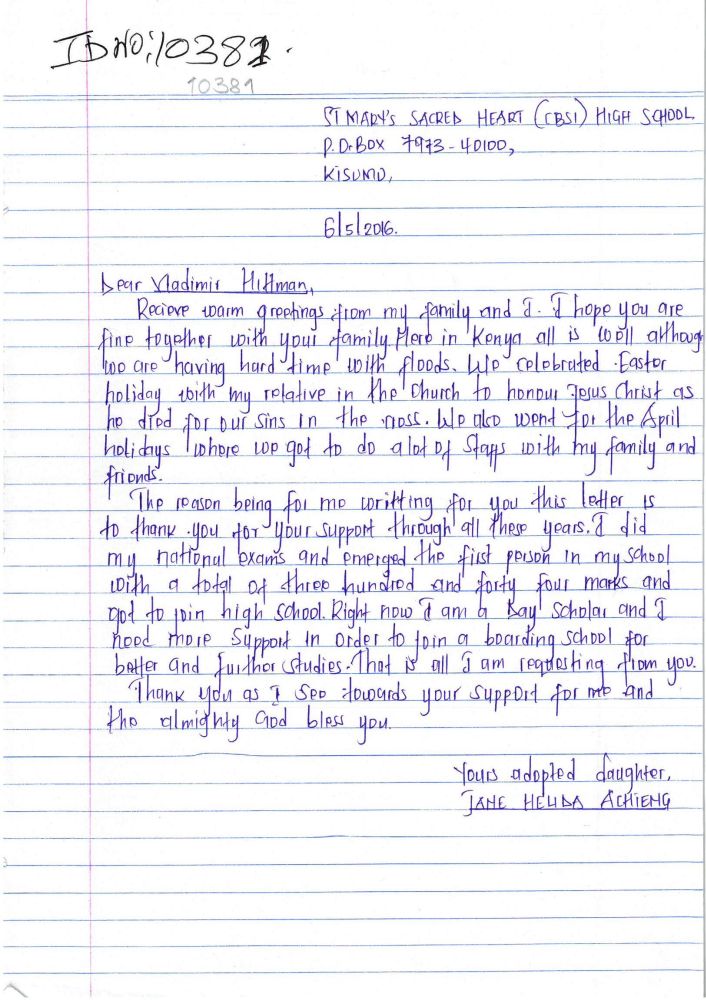 ID NO:10381.
10381
ST MARY'S SACRED HEART (CBSI) HIGH SCHOOL
P.O.BOX 7973-40100,
KISUMU,
6/5/2016.
Dear Vladimir Hittman,
Recieve warm greetings from my family and I. I hope you are
fine together with your family. Here in Kenya all is well although
we are having hard time with floods. We celebrated Easter
holiday with my relative in the Church to honour Jesus Christ as
he died for our sins in the cross. We also went for the April
holidays where we got to do alot of staffs with my family and
friends.
The reason being for me writting for you this letter is
to thank you for your support through all these years. I did
my national exams and emerged the first person in my school
with a total of three hundred and forty four marks and
got to join high school. Right now I am a Day Scholar and I
need more support in order to join a boarding school for
better and further studies. That is all I am requesting from you.
Thank you as I see towards your support for me and
the almighty God bless you.
Yours adopted daughter,
JANE HELIDA ACHIENG